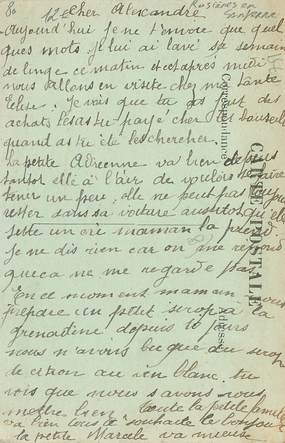 80 12e Cher Alexandre Rosières en Santerre
Aujourd'hui Je ne t'envoie que quel
ques mots je lui ai lavé sa semain
de linge ce matin et cet après midi
nous allons en visite chez ma tante
Elise. Je vois que tu as fait des
achats
quand as tu été les chercher.
la petite Adrienne va bien
tantot elle à l'air de vouloir
tenir un peu, elle ne peut pas
rester dans sa voiture aussitot qu'elle
jette un cri maman la prend.
Je ne dis rien car on me repond
que ca ne me regarde pas.
En ce moment maman
prépare un petit sirop a la
grenadine depuis 10 jours
nous n'avons bu que du sirop
de citron au vin blanc. tu
vois que nous savons nous
mettre bien. toute la petite famille
va bien tous te souhaite le bonjour
la petite Marcelle va mieux
Correspondance
CARTE POSTALE
Adresse